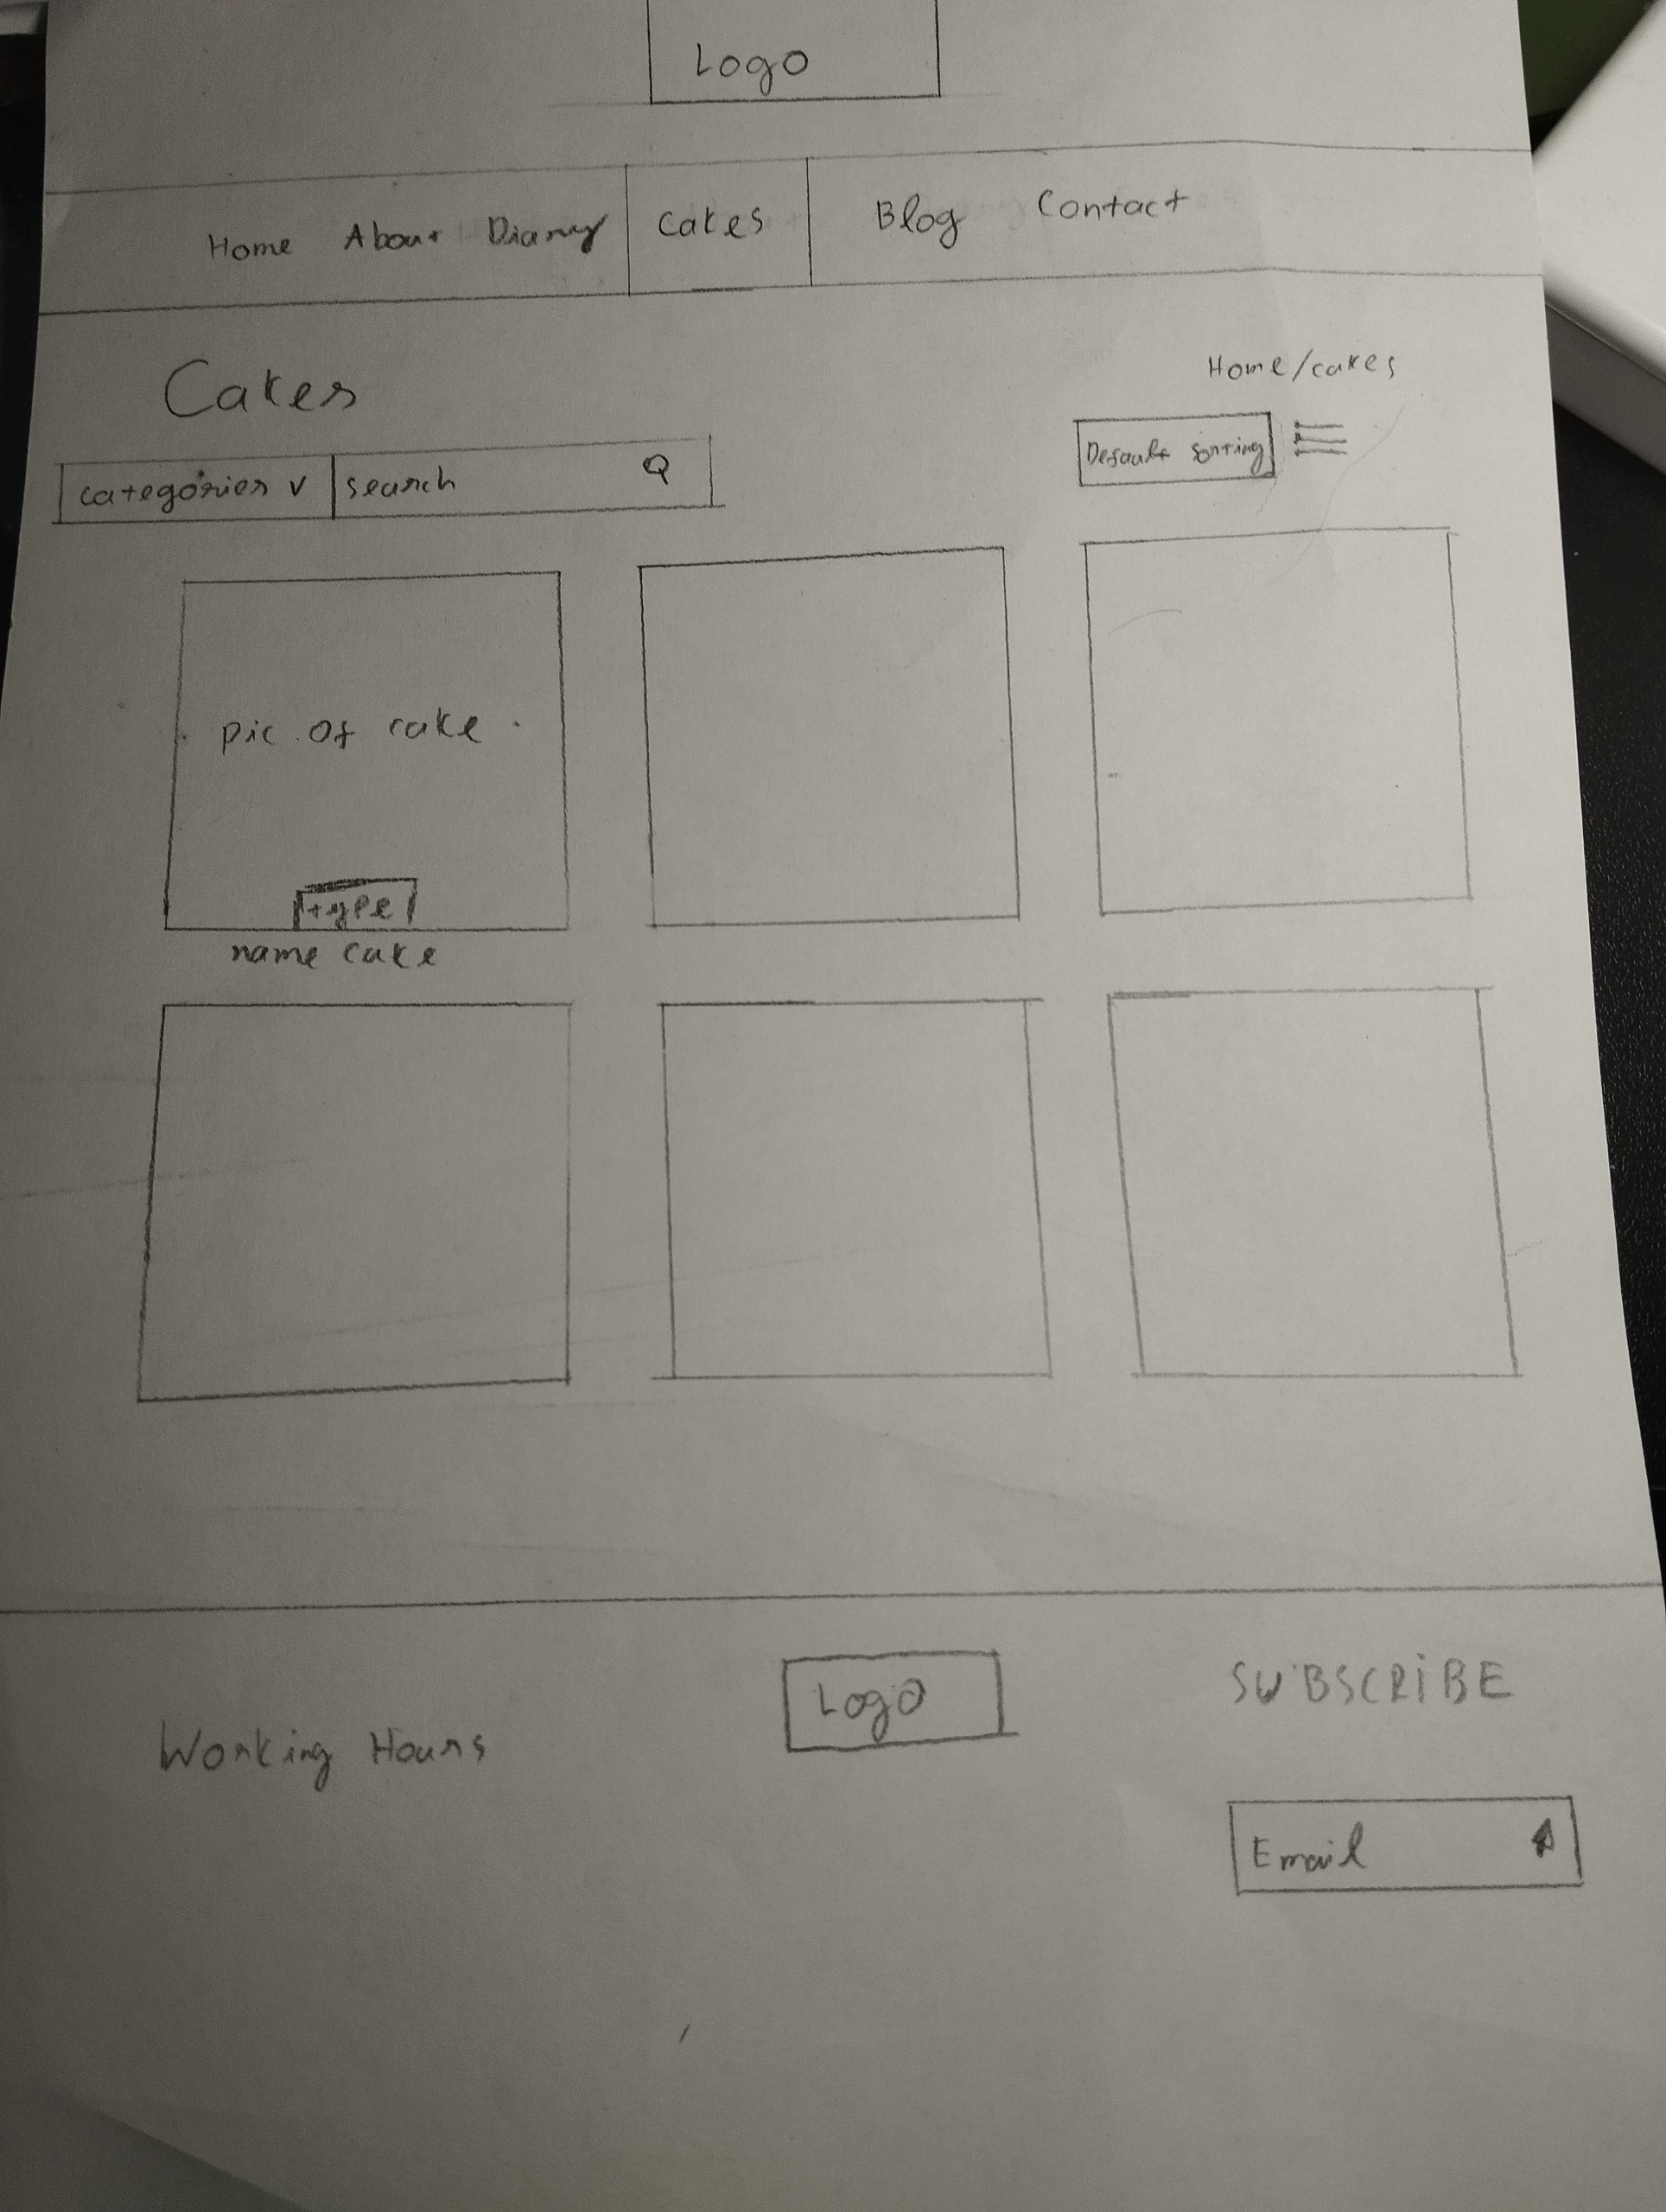 Logo
Home About Diany Cakes Blog Contact
Cakes
Home/cakes
categories v search
Default sorting
pic of cake
type
name cake
Logo
SUBSCRIBE
Working Hours
Email